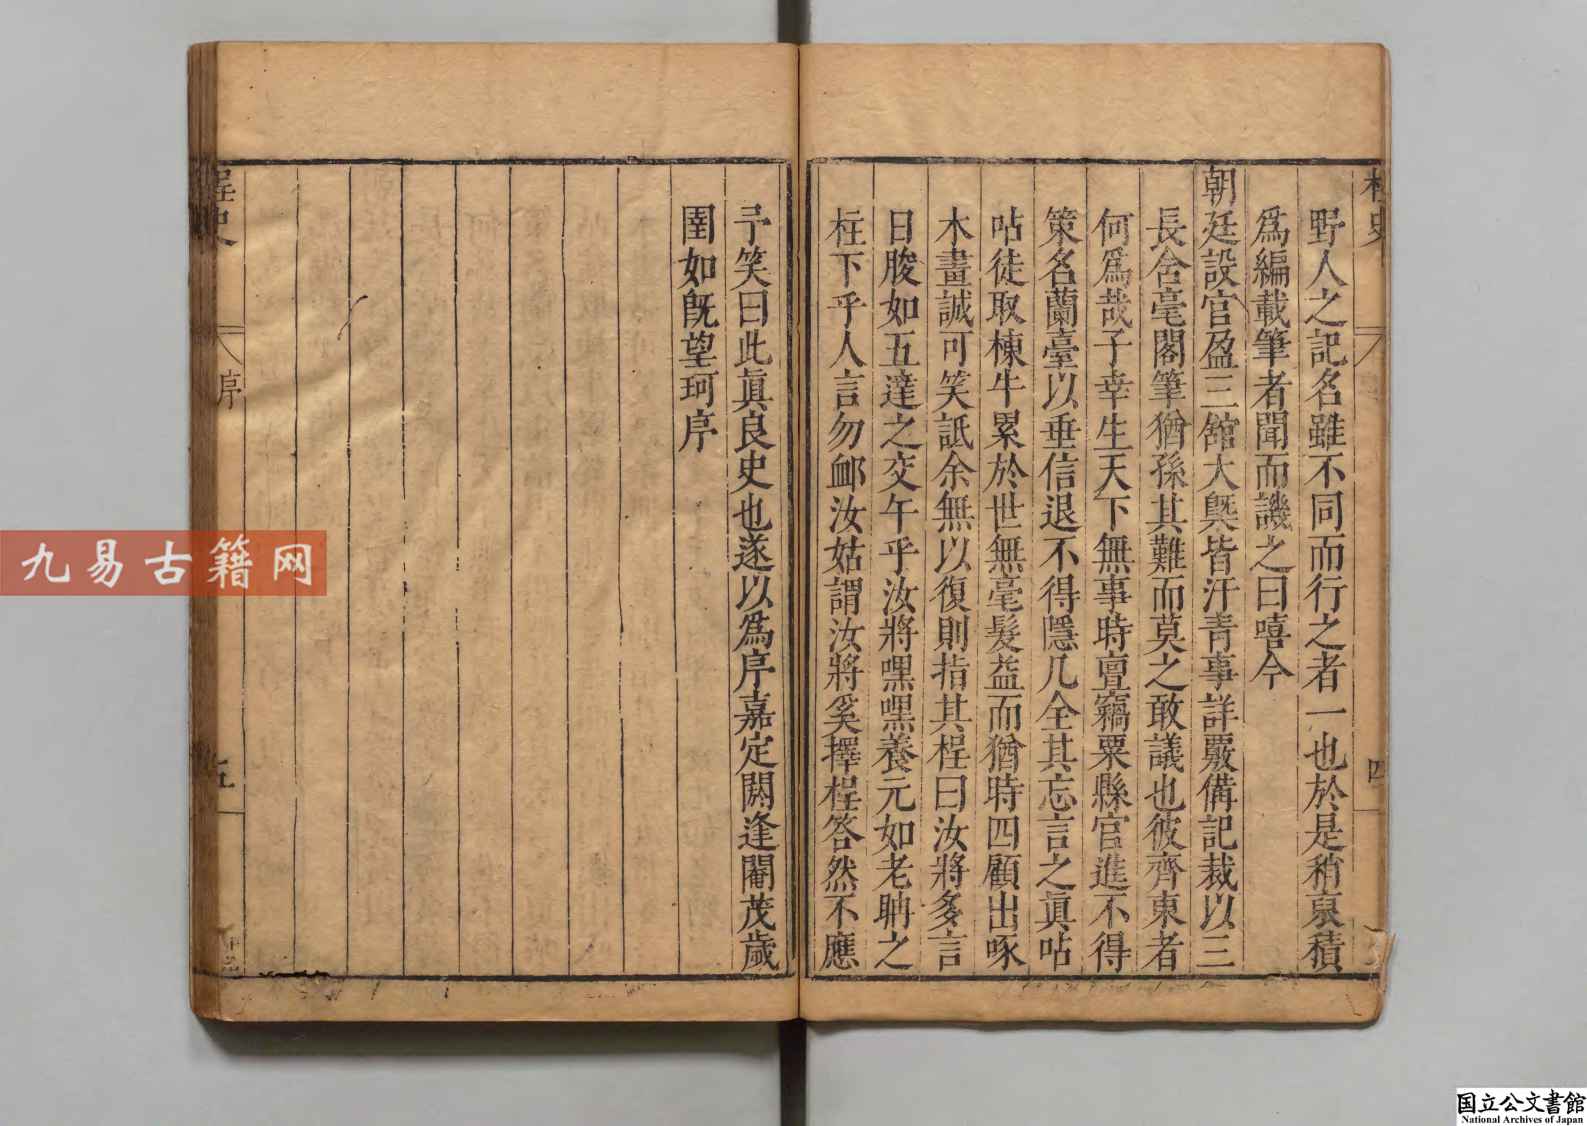 野人之記名雖不同而行之者一也於是稍裒積
爲編載筆者聞而譏之曰嘻今
朝廷設官盈三館大槩皆汗青事詳覈備記裁以三
長舍毫閣筆猶孫其難而莫之敢議也彼齊東者
何爲哉子幸生天下無事時亶竊粟縣官進不得
策名蘭臺以垂信退不得隱几全其忘言之眞呫
呫徒取棟牛累於世無毫髮益而猶時四顧出啄
木畫誠可笑詆余無以復則指其桯曰汝將多言
日朘如五達之交午乎汝將嘿嘿養元如老聃之
柱下乎人言勿卹汝姑謂汝將奚擇桯答然不應
予笑曰此眞良史也遂以爲序嘉定閼逢閹茂歲
圉如旣望珂序
桯史
序
五
四
九易古籍网
国立公文書館
National Archives of Japan